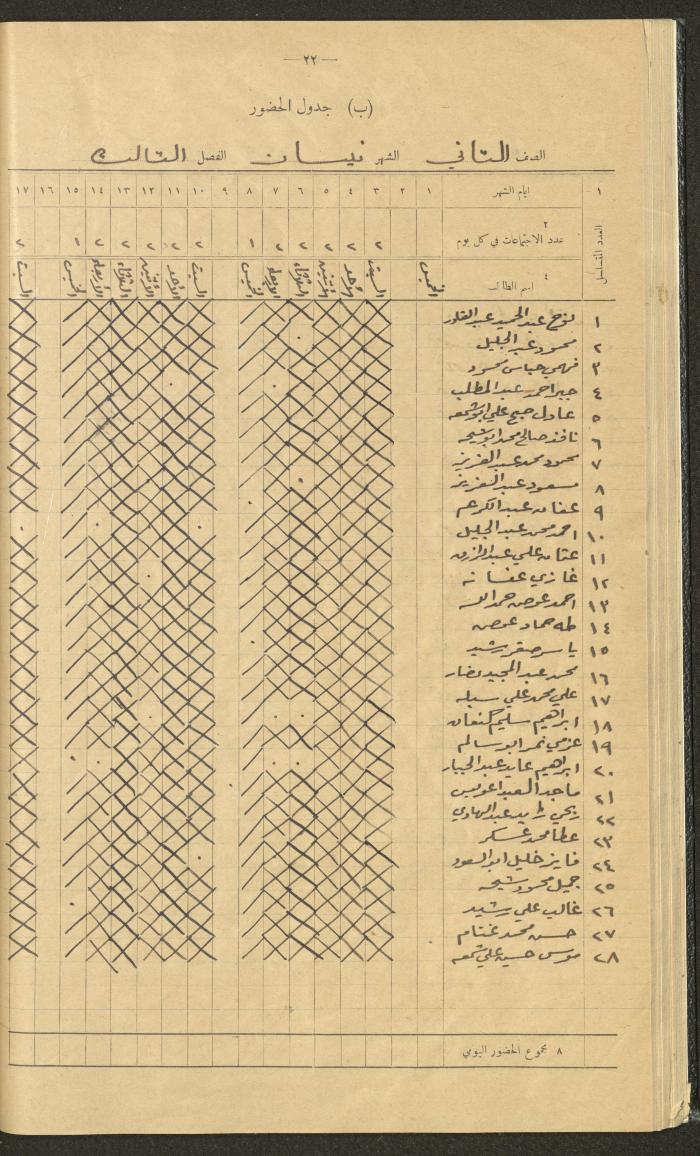 — ٢٢ —
(ب) جدول الحضور
الصف الثاني الشهر نيسان الفصل الثالث
١ ايام الشهر ١ ٢ ٣ ٤ ٥ ٦ ٧ ٨ ٩ ١٠ ١١ ١٢ ١٣ ١٤ ١٥ ١٦ ١٧
العدد المتسلسل
٢ عدد الاجتماعات في كل يوم ٢ ٢ ٢ ٢ ٢ ١ ٢ ٢ ٢ ٢ ٢ ١ ٢
٤ اسم الطالب الخميس السبت الأحد الأثنين الثلاثاء الاربعاء الخميس السبت الأحد الأثنين الثلاثاء الأربعاء الخميس السبت
١ نوح عبد الحميد عبد القادر
٢ محمود عبد الجليل
٣ فهمي عباس محمود
٤ جبر احمد عبد المطلب
٥ عادل علي ابو شمعه
٦ نافذ صالح محمد ابو شيحه
٧ محمود محمد عبد العزيز
٨ مسعود عبد العزيز
٩ عفان عبد الكريم
١٠ احمد محمد عبد الجليل
١١ عثمان علي عبد الرازق
١٢ غازي عفانه
١٣ احمد عوض حمد الله
١٤ طه حماد عوض
١٥ ياسر صقر رشيد
١٦ محمد عبد المجيد نصار
١٧ علي محمد علي
١٨ ابراهيم سليم كنعان
١٩ عزمي نمر ابو سالم
٢٠ ابراهيم عايد عبد الجبار
٢١ ماجد السعيد
٢٢ عبد الهادي
٢٣ عطا محمد عسكر
٢٤ فايز خليل ابو السعود
٢٥ جميل محمود شيحه
٢٦ غالب علي رشيد
٢٧ حسن محمد غنام
٢٨ موسى حسين علي شمعه
٨ مجموع الحضور اليومي